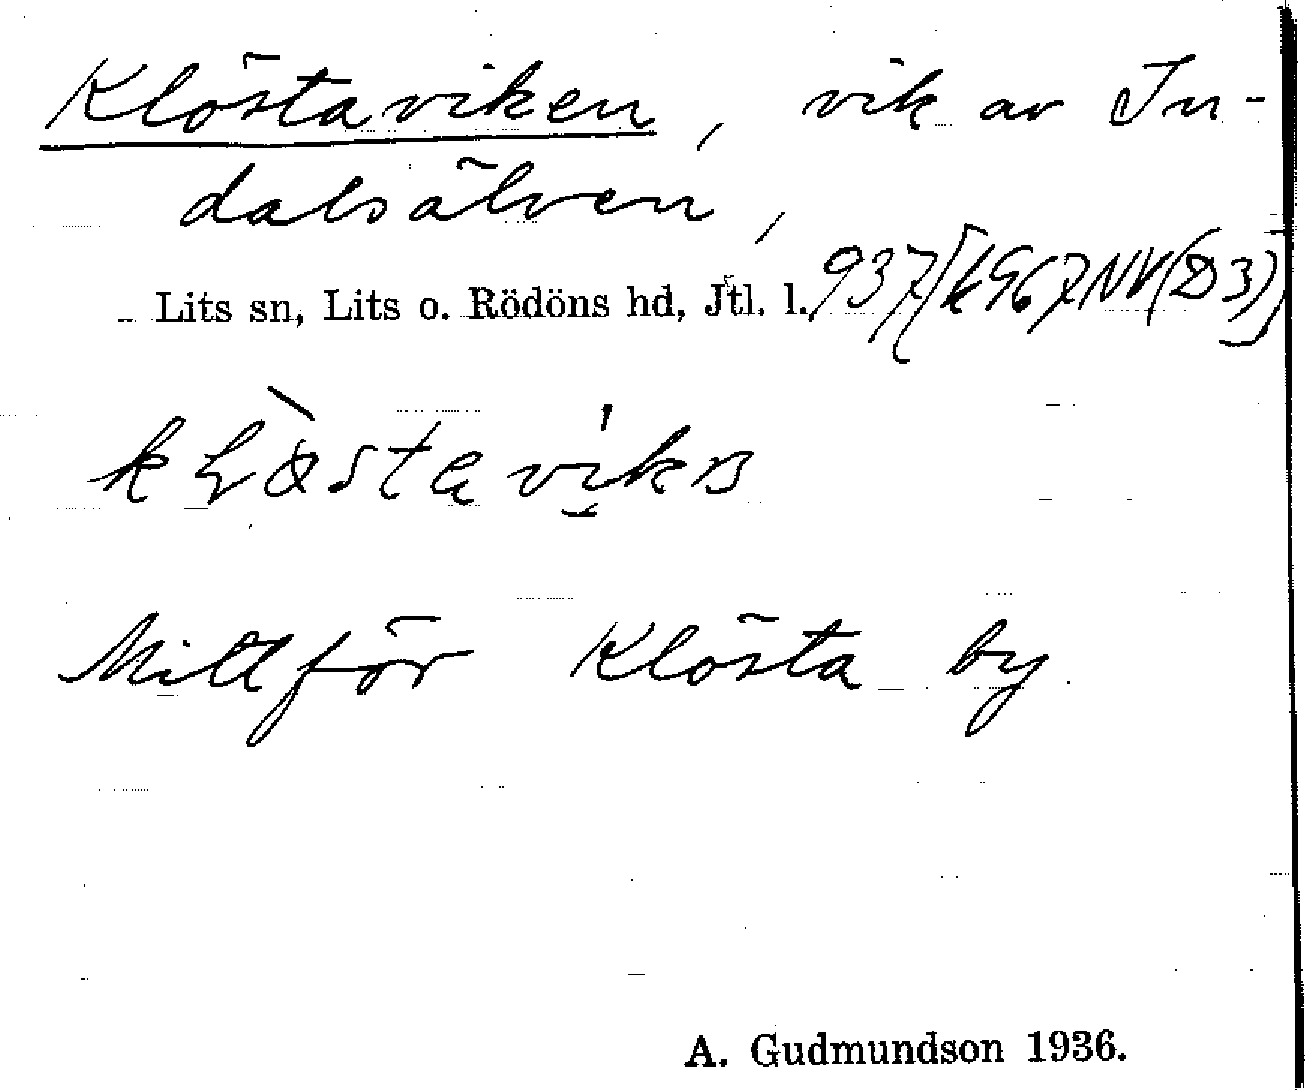 Klöstaviken, vik av In-
dalsälven,
Lits sn, Lits o. Rödöns hd, Jtl. l.,
Mittför Klösta by
A. Gudmundson 1936.